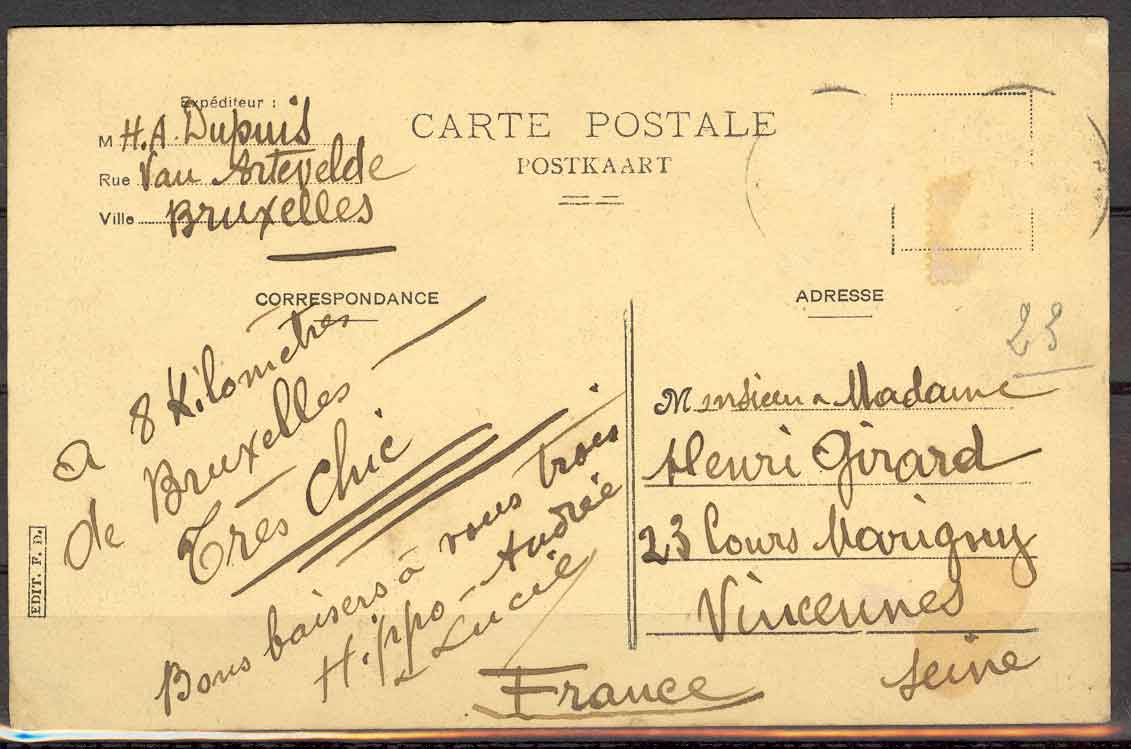 Expéditeur :
M H.A. Dupuis
Rue Van Artevelde
Ville Bruxelles
CARTE POSTALE
POSTKAART
CORRESPONDANCE
a 8 Kilometres
de Bruxelles
Tres Chic
Bons baisers à vous trois
Hippo - Andrée
Lucie
EDIT. F. D.
ADRESSE
23
Monsieur Madame
Henri Girard
23 Cours Marigny
Vincennes
Seine
France